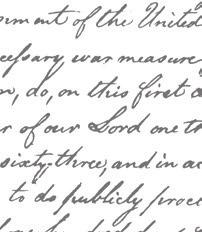 ment of the United
cessary war measure
n, do, on this first
r of our Lord one th
sixty-three, and in ac
to do publicly proc